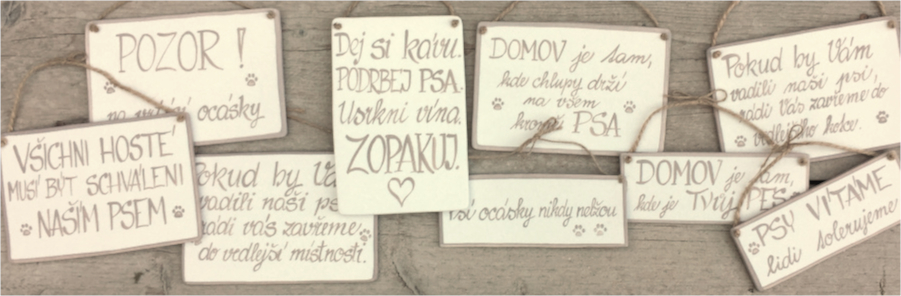 POZOR !
ocásky
VŠICHNI HOSTÉ
MUSÍ BÝT SCHVÁLENI
NAŠÍM PSEM
Pokud by
vadili naši
rádi vás zavřeme
do vedlejší místnosti.
Dej si kávu.
PODRBEJ PSA.
Usrkni vína.
ZOPAKUJ.
DOMOV je tam,
kde chlupy drží
na všem
kromě PSA
ocásky nikdy nelžou
DOMOV je tam,
kde je Tvůj PES
Pokud by Vám
vadili naši psi,
rádi Vás zavřeme do
vedlejšího kotce.
PSY VÍTÁME
lidi tolerujeme